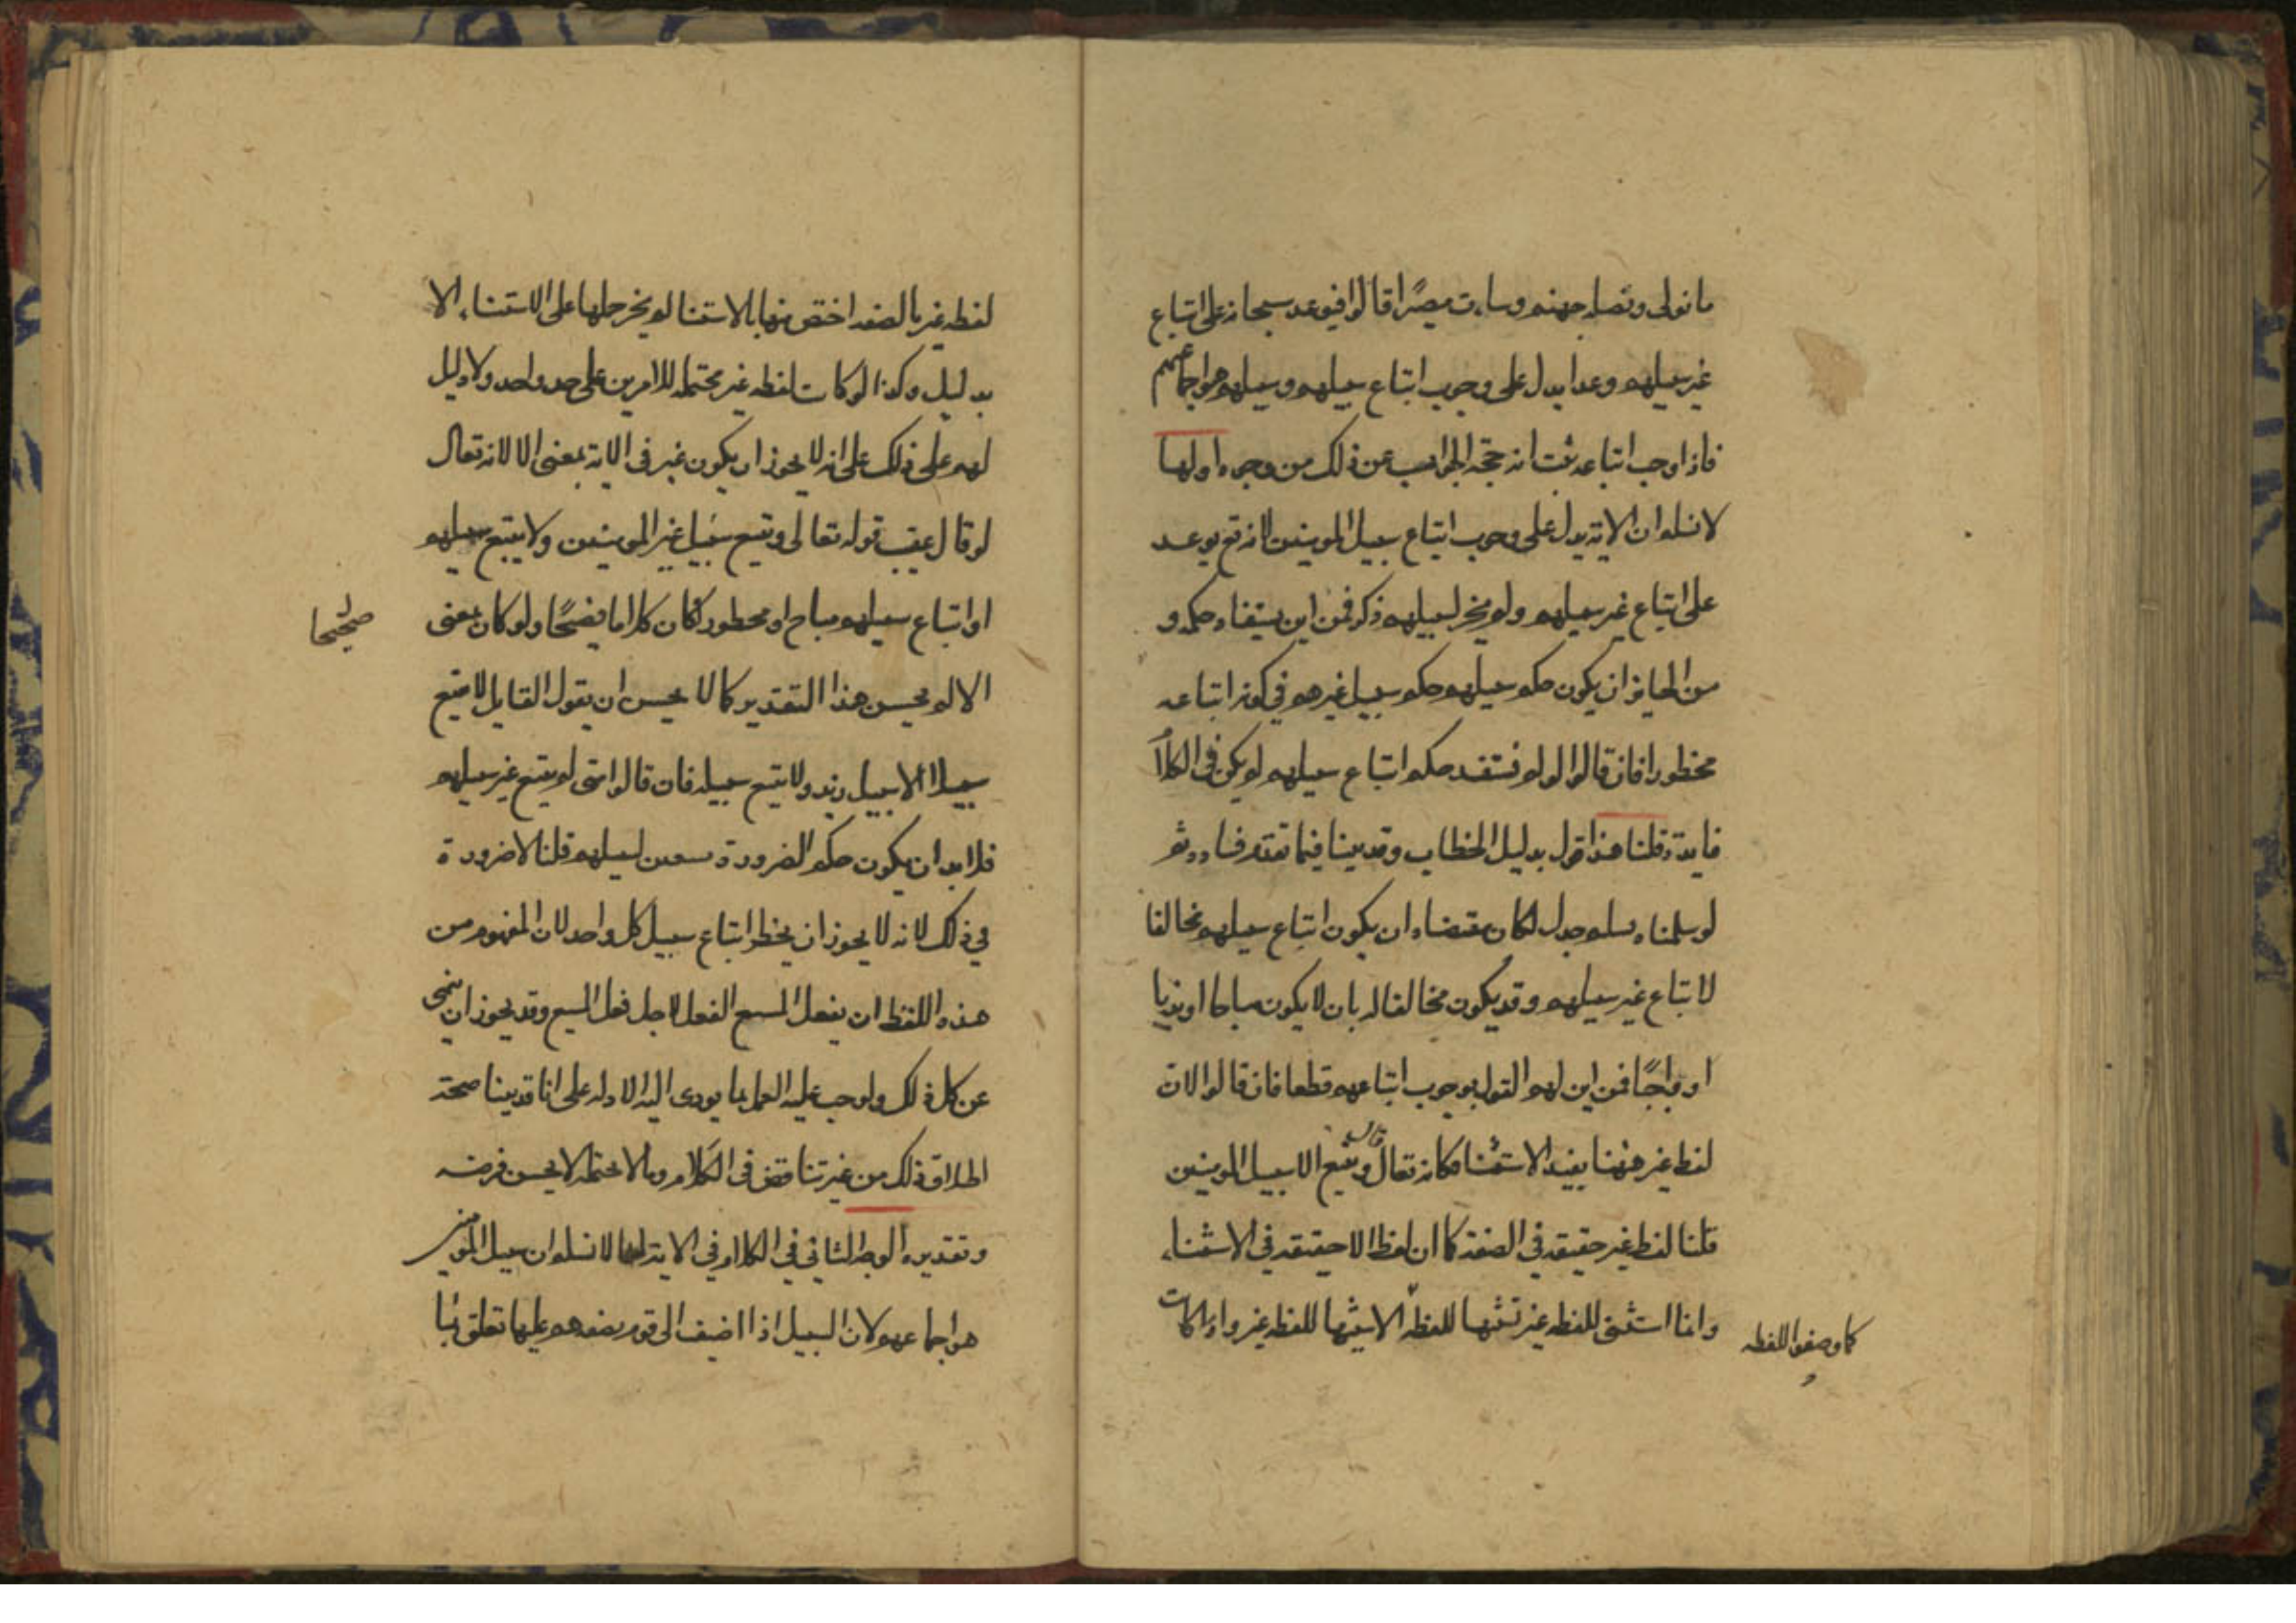 ما تولى ونصله جهنم وساءت مصيرًا قالوا فيوعد سبحانه على اتباع
غير سبيلهم وعدا يدل على وجوب اتباع سبيلهم وسبيلهم هو اجماعهم
فاذا وجب اتباعه ثبت انه حجة الجواب عن ذلك من وجوه اولها
لا نسلم ان الاية يدل على وجوب اتباع سبيل المومنين لانه تع يوعد
على اتباع غير سبيلهم ولم يجر لسبيلهم ذكر فمن اين يستفاد حكمه و
من الجايز ان يكون حكم سبيلهم حكم سبيل غيرهم في كونه اتباعه
محظورا فان قالوا لو لم نستفد حكم اتباع سبيلهم لم يكن في الكلام
فايدة قلنا هذا قول بدليل الخطاب وقد بينا فيما تقدم فساده ثم
لو سلمناه تسليم جدل لكان مقتضاه ان يكون اتباع سبيلهم مخالفا
لاتباع غير سبيلهم وقد يكون مخالفا له بان لا يكون مباحا او ندبا
او واجبًا فمن اين لهم القول بوجوب اتباعهم قطعا فان قالوا لان
لفظ غير ههنا يفيد الاستثنا فكانه تعالى قال ويتبع الا سبيل المومنين
قلنا لفظ غير حقيقة في الصفة كما ان لفظ الا حقيقة في الاستثناء
وانما استثنى للفظه غير تشبها للفظه الا شبها للفظه غير واذا كانت
كما وصفوا اللفظه
لفظه غير بالصفه اختص منها بالاستثنا لم يجز حملها على الاستثناء الا
بدليل وكذا لو كانت لفظه غير محتمله للامرين على حد واحد ولا دليل
لهم على ذلك على انه لا يجوز ان يكون غير في الاية بمعنى الا لانه تعالى
لو قال عقيب قوله تعالى ويتبع سبيل غير المومنين ولا يتبع سبيلهم
او اتباع سبيلهم مباح او محظور لكان كلاما فصيحًا ولو كان بمعنى
صحيحا
الا لم يحسن هذا التقدير كما لا يحسن ان يقول القايل لا تتبع
سبيلا الا سبيل زيد ولا تتبع سبيله فان قالوا متى لم يتبع غير سبيلهم
فلا بد ان يكون حكم الضرورة لسبيلهم قلنا لا ضرورة
في ذلك لانه لا يجوز ان يحظر اتباع سبيل كل واحد لان المفهوم من
هذه اللفظ ان يفعل المتبع الفعل لاجل فعل المتبع وقد يجوز ان ينهى
عن كل ذلك ولوجب عليه العمل بما يودى اليه الادله على انا قد بينا صحة
اطلاق ذلك من غير تناقض في الكلام وما لا يحتمله لا يحسن فرضه
وتقديره الوجه الثاني في الكلام في الاية انا لا نسلم ان سبيل المومنين
هو اجماعهم لان السبيل اذا اضيف الى قوم بعضهم عليها تعلق